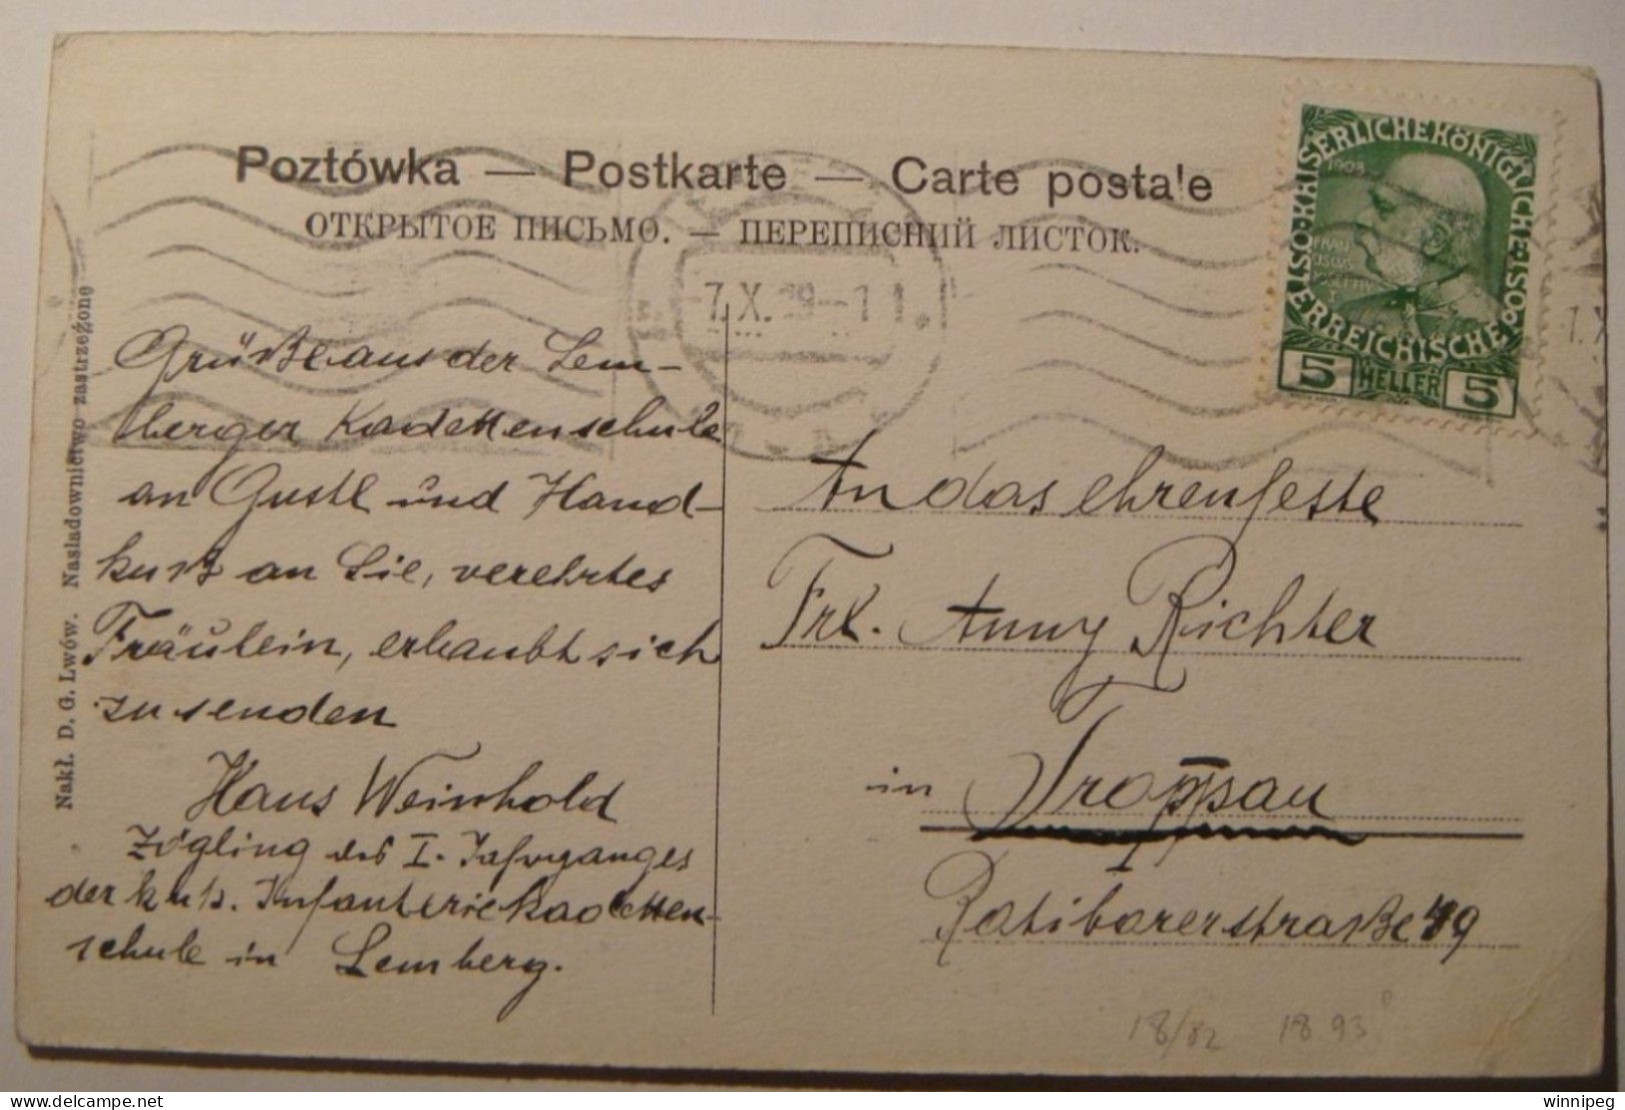 Poztówka — Postkarte — Carte posta'e
ОТКРЫТОЕ ПИСЬМО. — ПЕРЕПИСНИЙ ЛИСТОК.
Nakł. D. G. Lwów. Nasladownictwo zastrzeżone
KAISERLICHE KÖNIGLICHE ÖSTERREICHISCHE
1908 1908
5 HELLER 5
7.X.
Grüße aus der Lem-
berger Kadettenschule
an Gustl und Hand-
kuß an Sie, verehrtes
Fräulein, erlaubt sich
zu senden
Hans Weinhold
Zögling des I. Jahrganges
der k.u.k. Infanteriekadetten-
schule in Lemberg.
An das ehrenfeste
Frl. Anny Richter
in Troppau
Ratiborerstraße 49
18/82 18.93
winnipeg